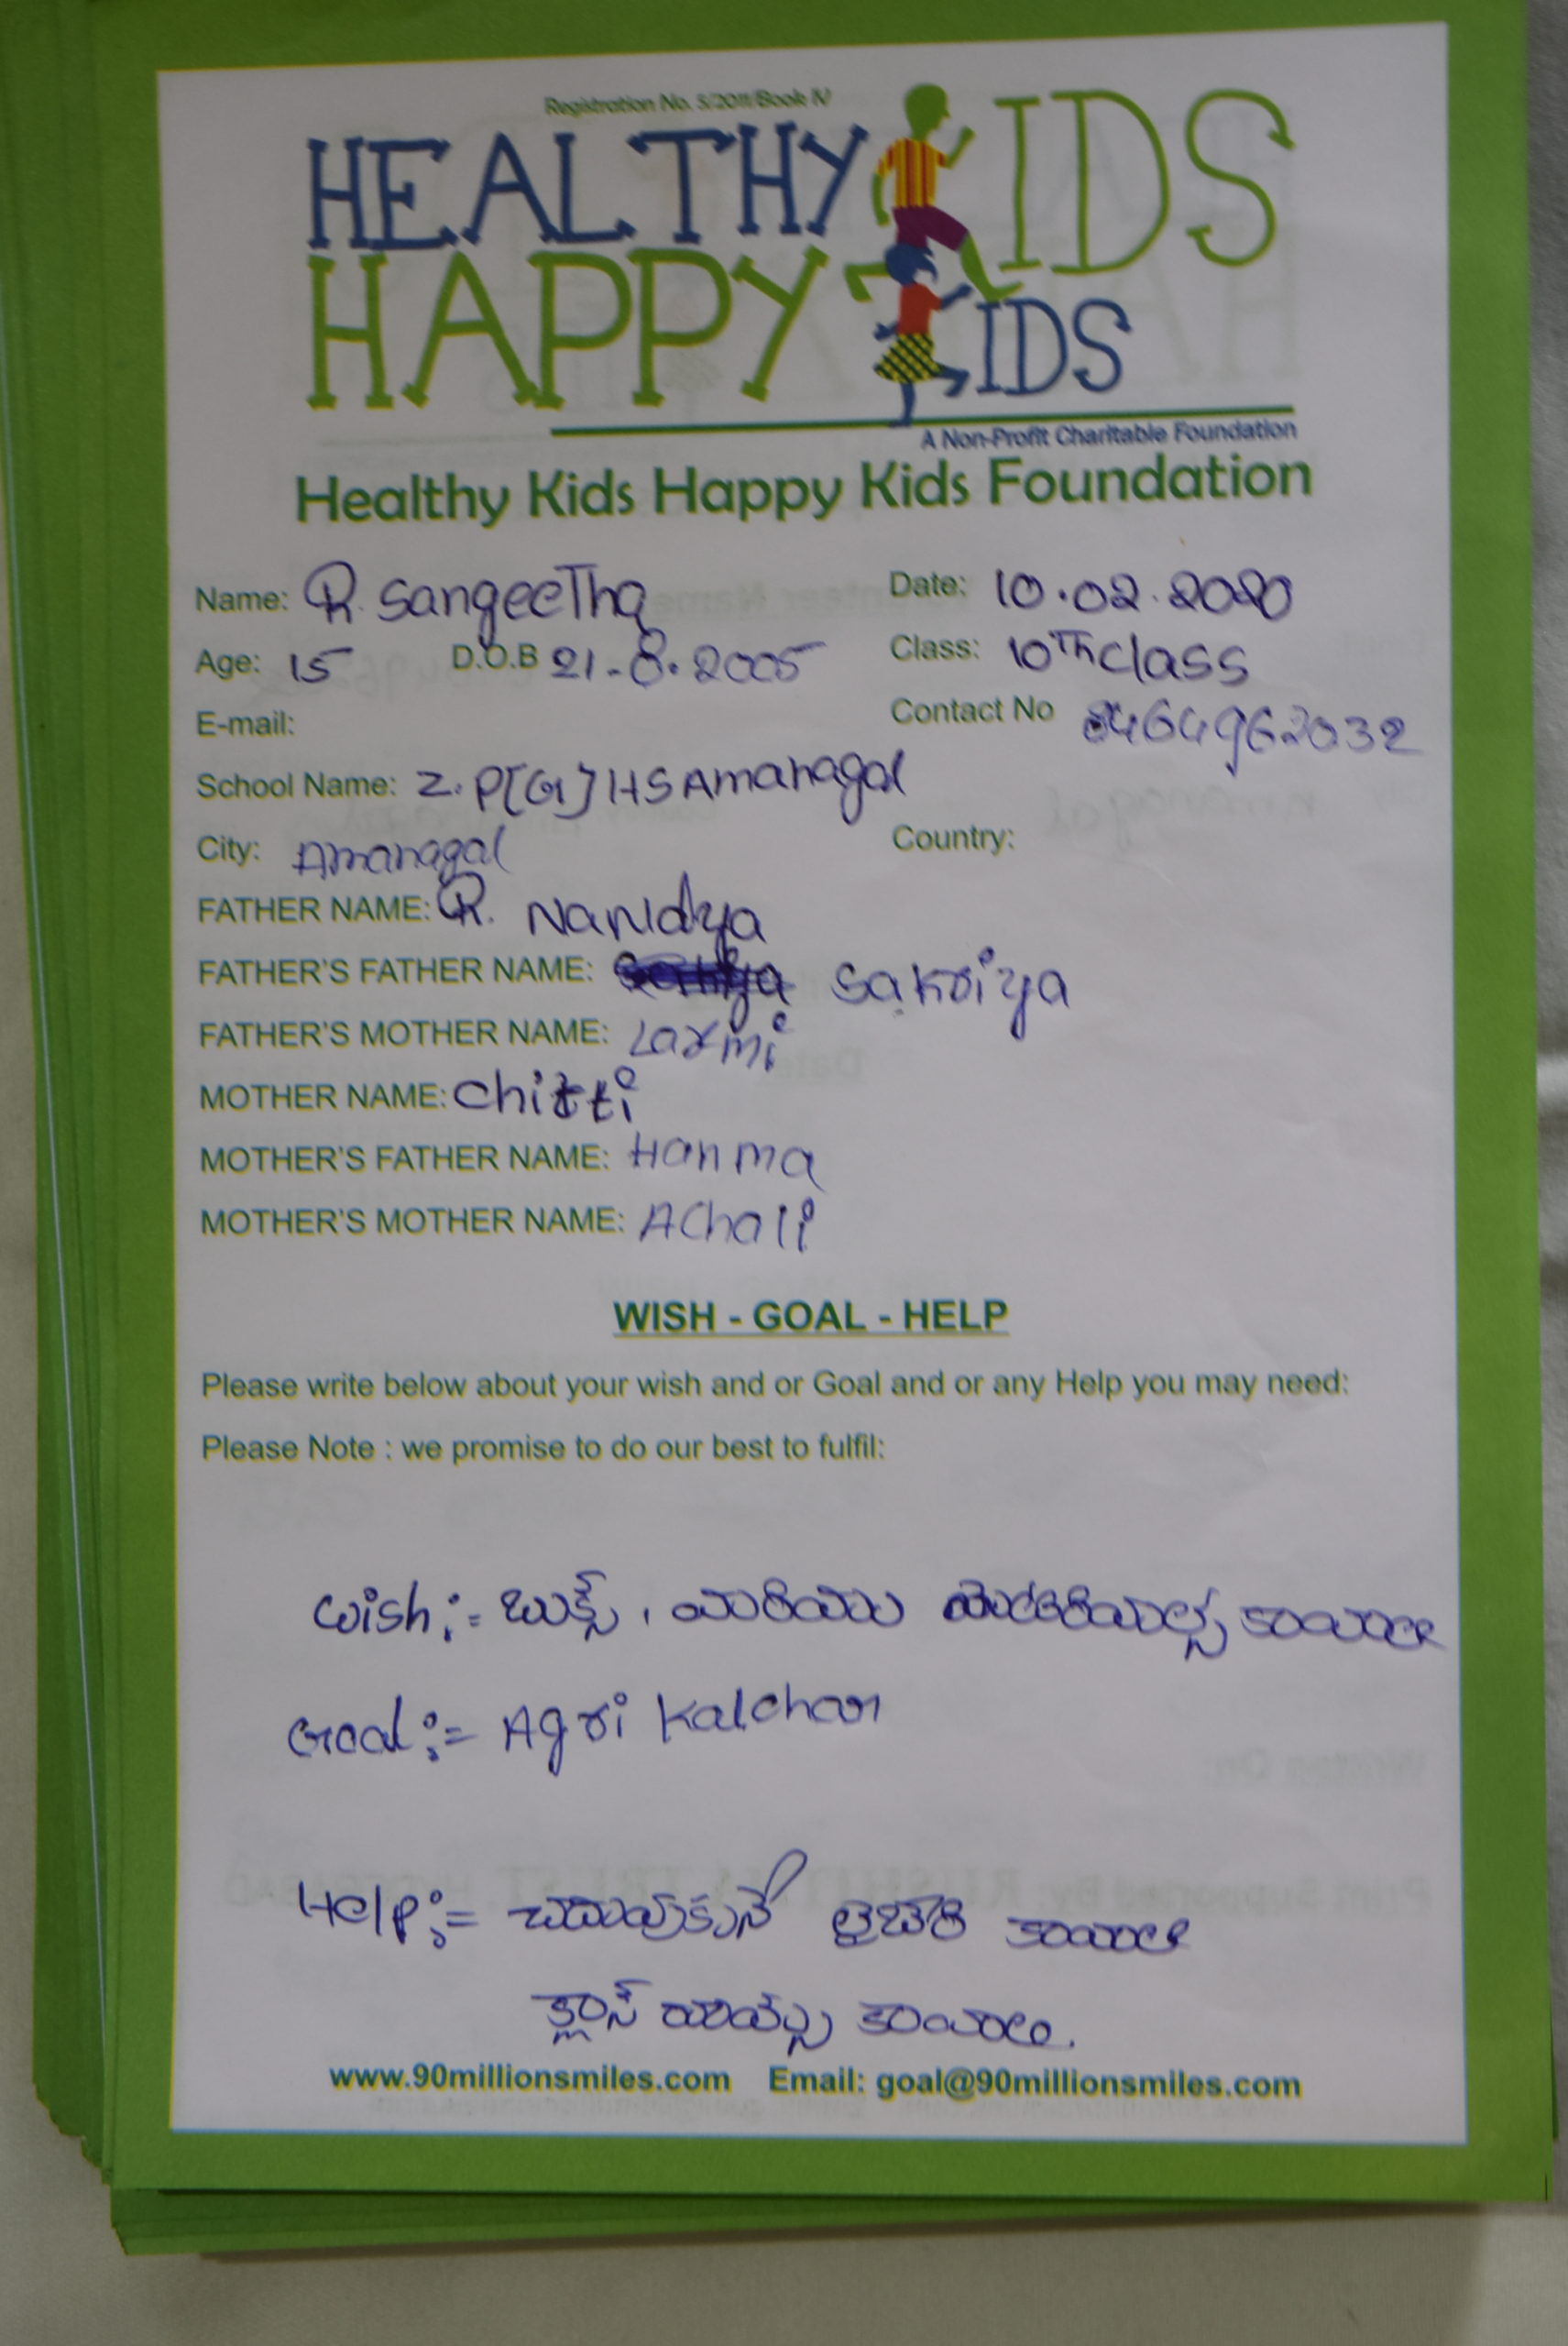 Registration No. 5/2011/Book IV
HEALTHY KIDS
HAPPY KIDS
A Non-Profit Charitable Foundation
Healthy Kids Happy Kids Foundation
Name: R. SangeeTha Date: 10.02.2020
Age: 15 D.O.B 21-8.2005 Class: 10Th class
E-mail: Contact No 8464962032
School Name: Z.P[G] HS Amanagal
City: Amanagal Country:
FATHER NAME: R. Nanldya
FATHER'S FATHER NAME: Sakriya
FATHER'S MOTHER NAME: Laxmi
MOTHER NAME: Chitti
MOTHER'S FATHER NAME: Hanma
MOTHER'S MOTHER NAME: AChali
WISH - GOAL - HELP
Please write below about your wish and or Goal and or any Help you may need:
Please Note : we promise to do our best to fulfil:
Wish:= బుక్స్, మరియు మెటీరియల్స్ కావాలి
Goal:= Agri Kalchar
Help:= చదువుకునే లైబ్రరి కావాలి
క్లాస్ రూమ్స్ కావాలి.
www.90millionsmiles.com Email: goal@90millionsmiles.com